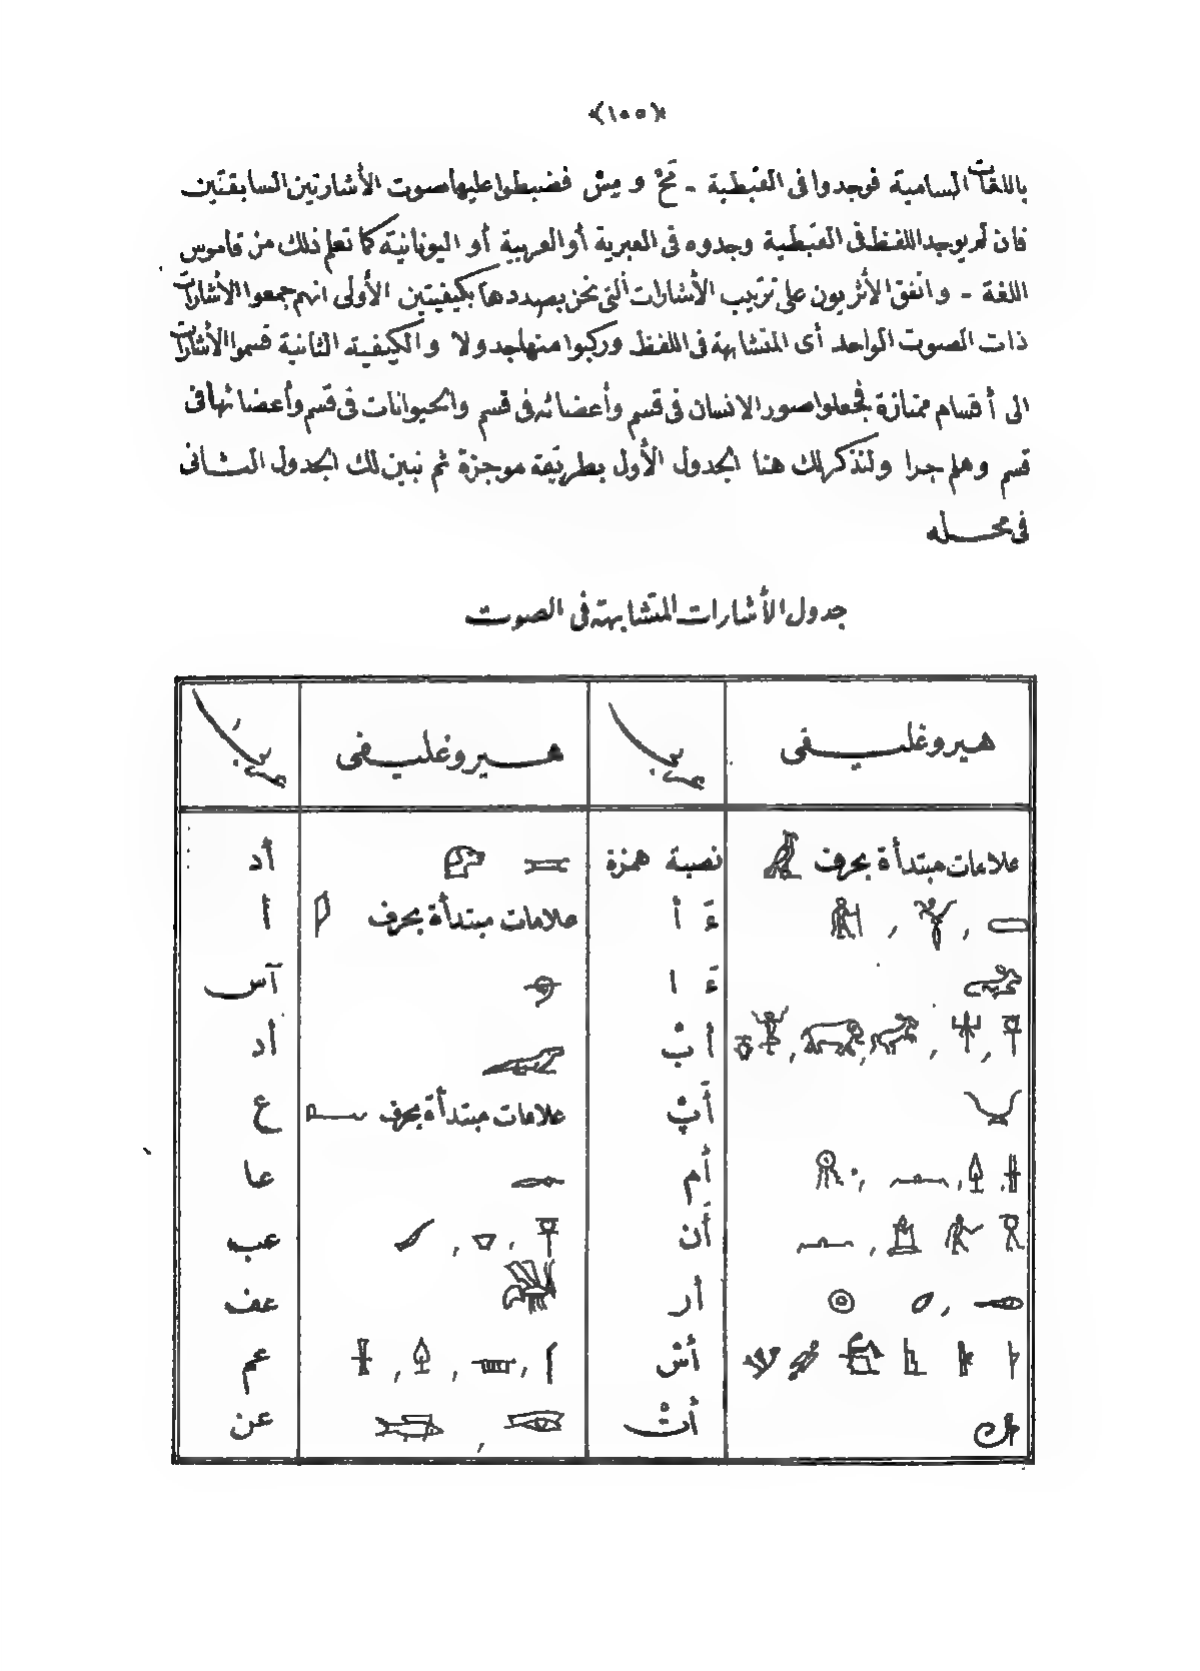 ﴿١٥٥﴾
باللغات السامية فوجدوا فى القبطية - مَحْ و مِسْ فضبطوا عليها صوت الأشارتين السابقتين
فان لم يوجد اللفظ فى القبطية وجدوه فى العبرية أو العربية أو اليونانية كما تعلم ذلك من قاموس
اللغة - واتفق الأثريون على ترتيب الأشارات التى نحن بصددها بكيفيتين الأولى انهم جمعوا الأشارات
ذات الصوت الواحد أى المتشابهة فى اللفظ وركبوا منها جدولا والكيفية الثانية قسموا الأشارات
الى أقسام ممتازة فجعلوا صور الانسان فى قسم وأعضائه فى قسم والحيوانات فى قسم وأعضائها فى
قسم وهلم جرا ولنذكر لك هنا الجدول الأول بطريقة موجزة ثم نبين لك الجدول الثانى
فى محله
جدول الأشارات المتشابهة فى الصوت
هيروغليفى عربى هيروغليفى عربى
علامات مبتدأة بحرف نصبة همزة أد
ءَ أ علامات مبتدأة بحرف أ
ءَ ا آس
أبْ أد
أَپْ علامات مبتدأة بحرف ع
أَم عا
أَن عب
أر عف
أسْ عم
أتْ عن